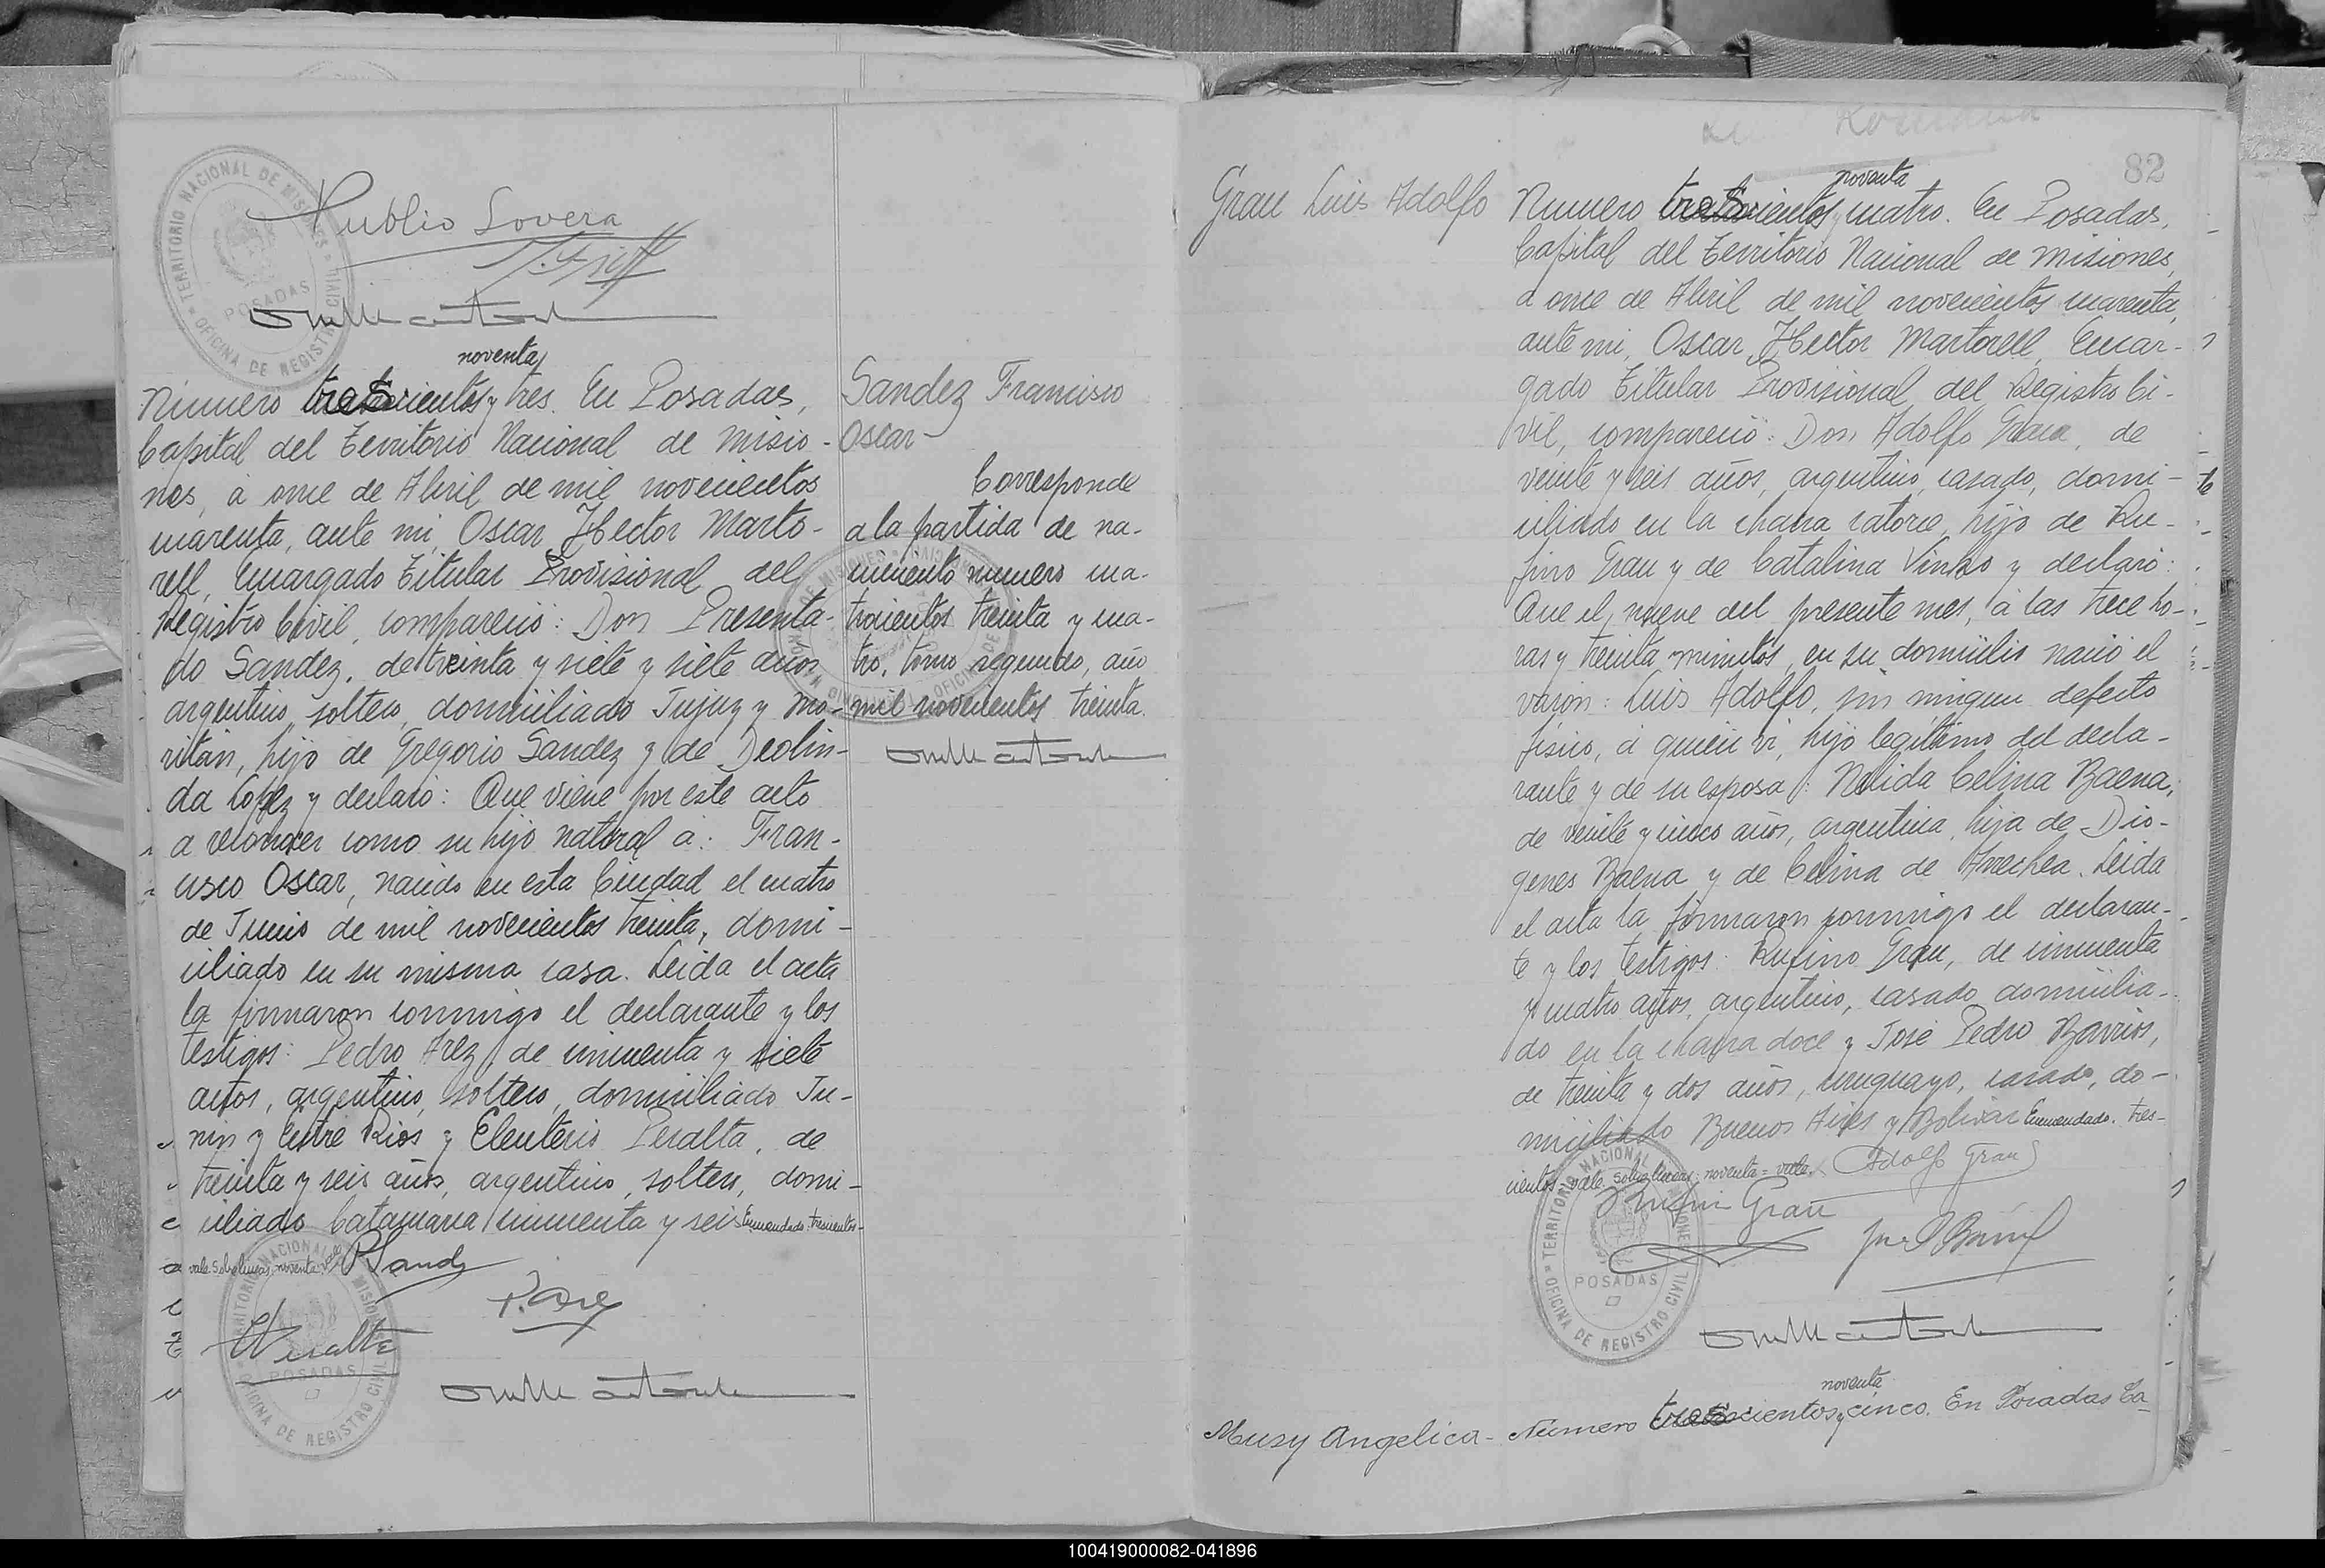 Publio Lovera
TERRITORIO NACIONAL DE MISIONES
POSADAS
OFICINA DE REGISTRO CIVIL
noventa
Número trescientos y tres. En Posadas,
Capital del Territorio Nacional de Misio-
nes, a once de Abril de mil novecientos
cuarenta, ante mi, Oscar Hector Marto-
rell, Encargado Titular Provisional del
Registro Civil, compareció: Don Presenta-
do Sandez, de treinta y siete y siete años
argentino, soltero, domiciliado Jujuy y Mo-
ritán, hijo de Gregorio Sandez y de Deolin-
da Lopez y declaró: Que viene por este acto
a reconocer como su hijo natural a: Fran-
cisco Oscar, nacido en esta Ciudad el cuatro
de Junio de mil novecientos treinta, domi-
ciliado en su misma casa. Leida el acta
la firmaron conmigo el declarante y los
testigos: Pedro Arez, de cincuenta y siete
años, argentino, soltero, domiciliado Ju-
nin y Entre Rios y Eleuterio Peralta, de
treinta y seis años, argentino, soltero, domi-
ciliado Catamarca cincuenta y seis Enmendado: trescientos-
vale. Sobre lineas: noventa: vale
P Sandez
P. Arez
EPeralta
TERRITORIO NACIONAL DE MISIONES
POSADAS
OFICINA DE REGISTRO CIVIL
Sandez Francisco
Oscar-
Corresponde
a la partida de na-
cimiento numero cua-
trocientos treinta y cua-
tro, tomo segundo, año
mil novecientos treinta.
82
Grau Luis Adolfo
noventa
Numero trescientos y cuatro. En Posadas,
Capital del Territorio Nacional de Misiones,
a once de Abril de mil novecientos cuarenta,
ante mi, Oscar Hector Martorell, Encar-
gado Titular Provisional del Registro Ci-
vil, compareció: Don Adolfo Grau, de
veinte y seis años, argentino, casado, domi-
ciliado en la chacra catorce, hijo de Ru-
fino Grau y de Catalina Vinho y declaró:
Que el nueve del presente mes, a las trece ho-
ras y treinta minutos, en su domicilio nació el
varón: Luis Adolfo, sin ningun defecto
físico, a quien vi, hijo legitimo del decla-
rante y de su esposa: Nelida Celina Baena,
de veinte y cinco años, argentina, hija de Dio-
genes Baena y de Celina de Arrechea. Leida
el acta la firmaron conmigo el declaran-
te y los testigos: Rufino Grau, de cincuenta
y cuatro años, argentino, casado, domicilia-
do en la chacra doce y José Pedro Barrios,
de treinta y dos años, uruguayo, casado, do-
miciliado Buenos Aires y Bolivar Enmendado: tres-
cientos-vale. Sobre lineas: noventa = vale.
Adolfo Grau
Rufino Grau
TERRITORIO NACIONAL DE MISIONES
POSADAS
OFICINA DE REGISTRO CIVIL
Musy Angelica-
noventa
Número trescientos y cinco. En Posadas Ca
100419000082-041896